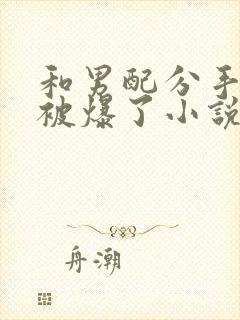 和男配分手
被爆了小說
舟潮